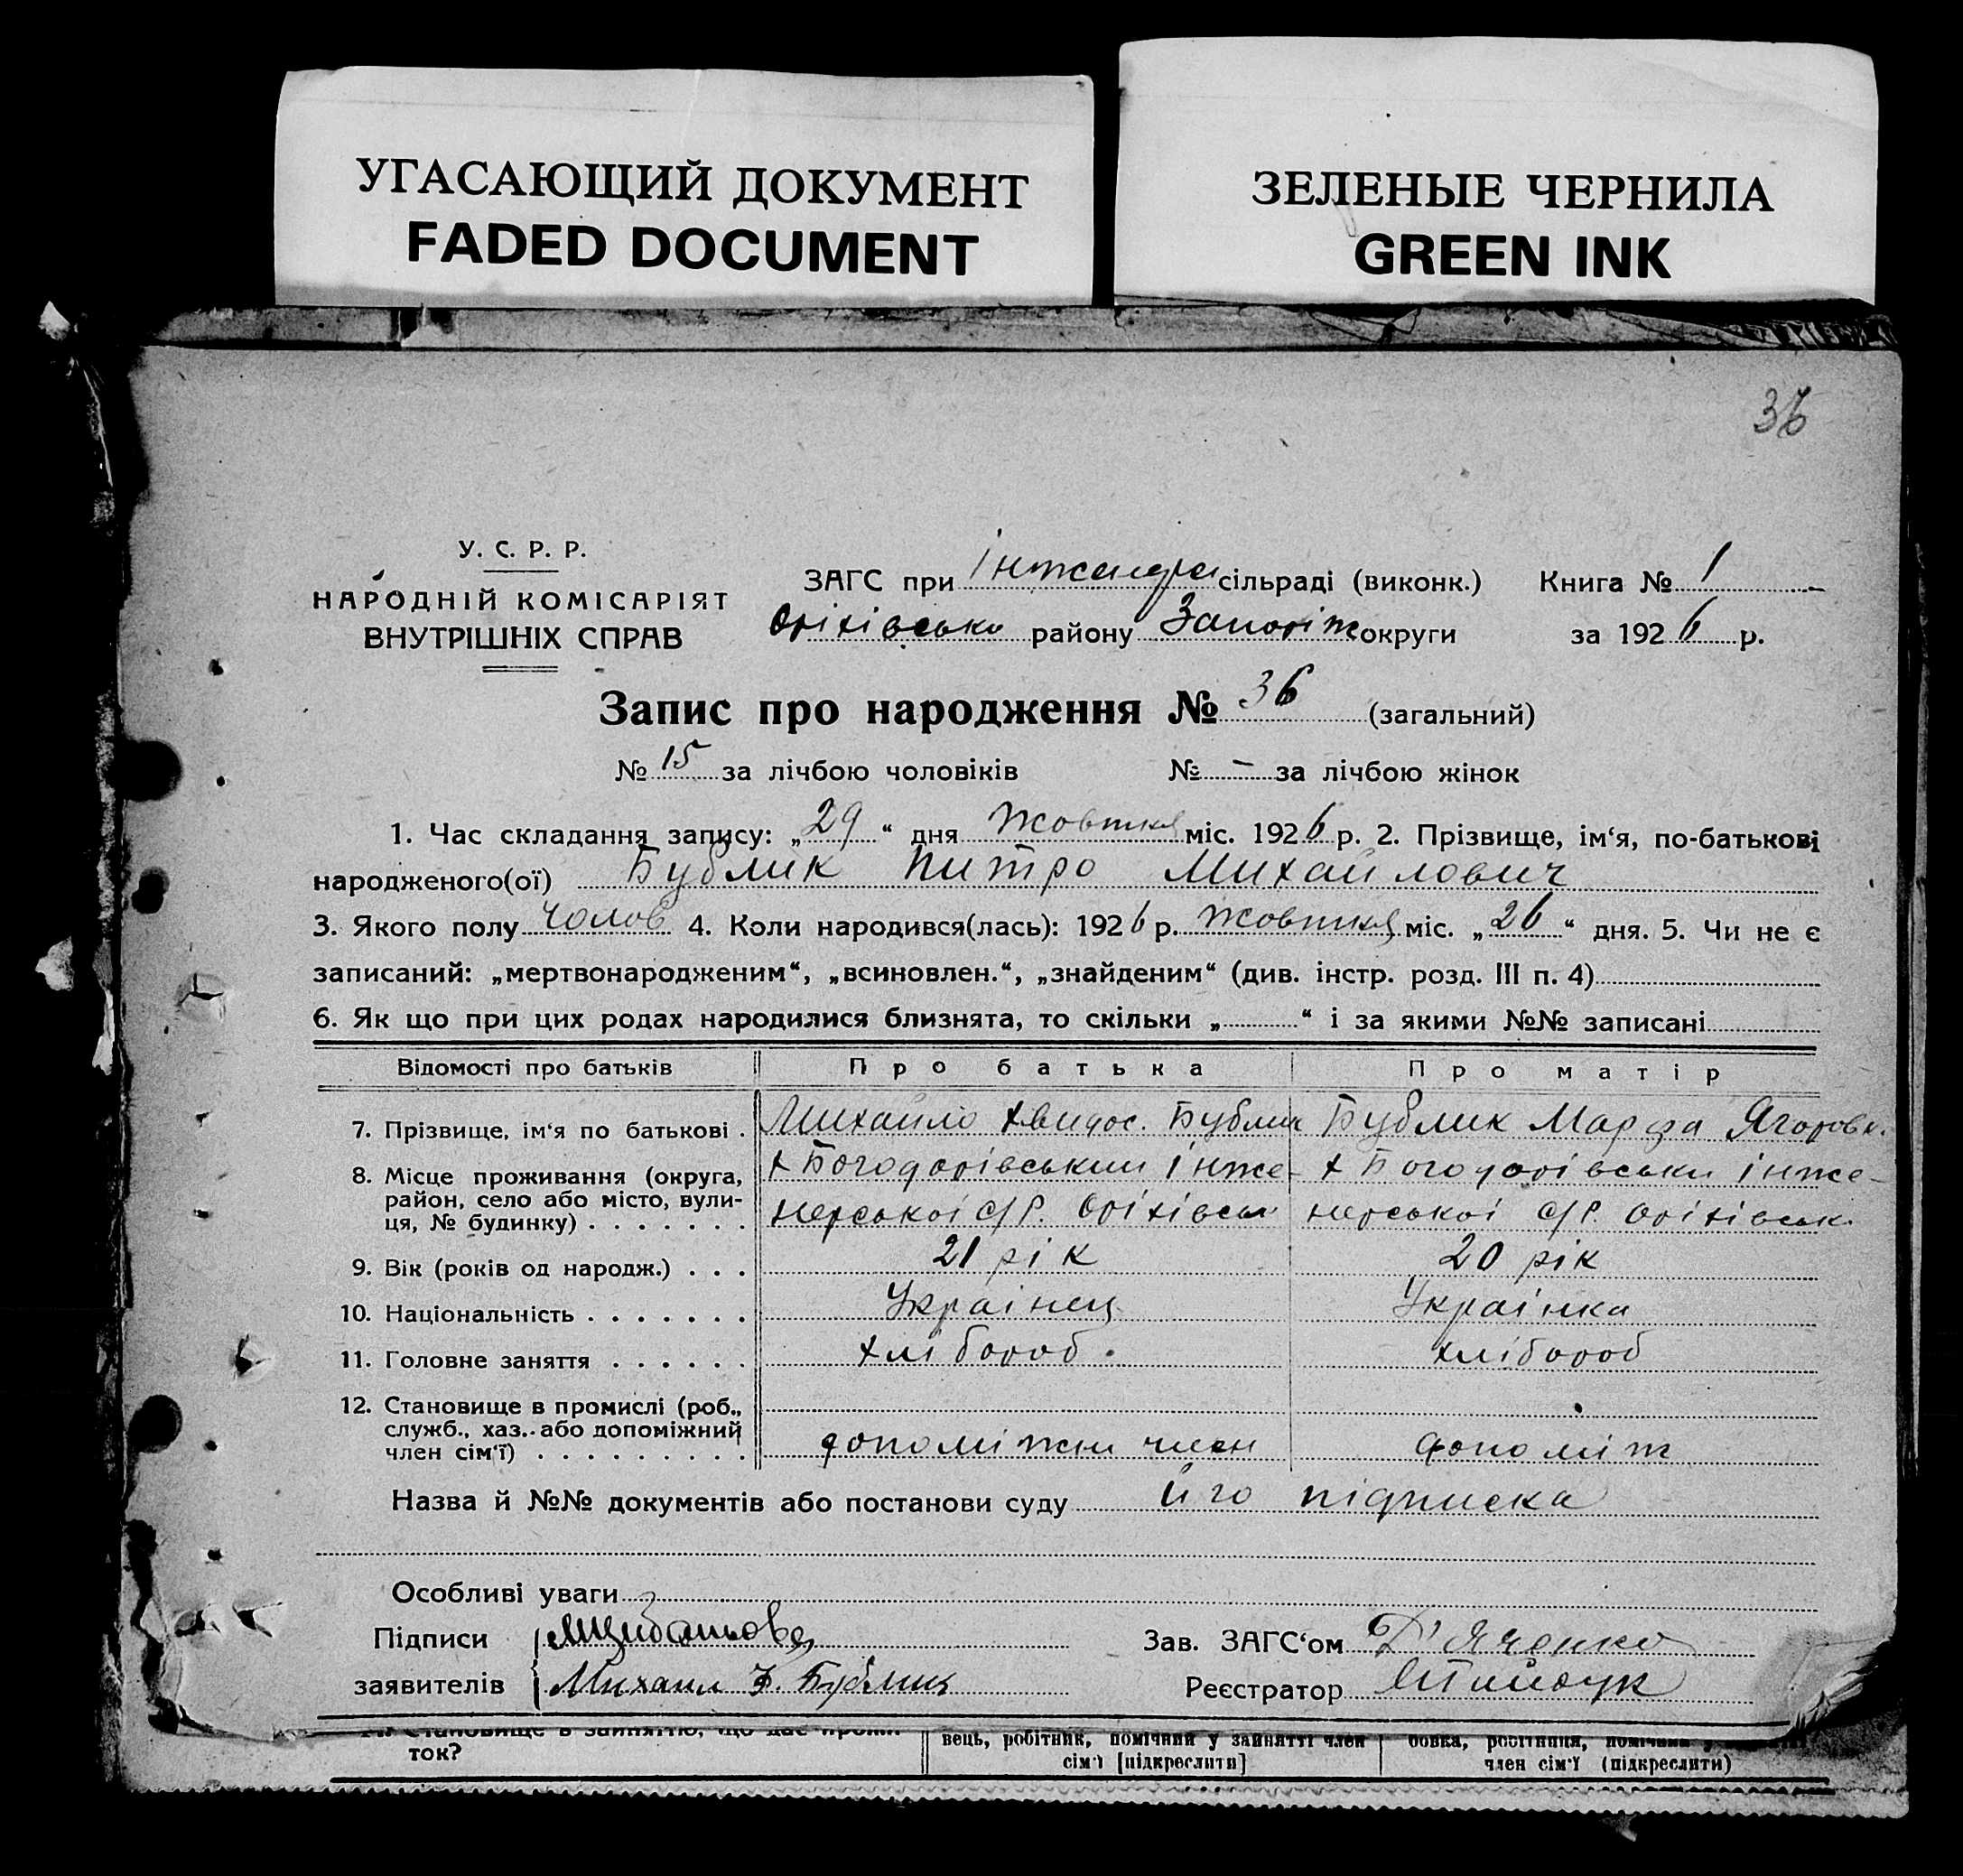 УГАСАЮЩИЙ ДОКУМЕНТ
FADED DOCUMENT
ЗЕЛЕНЫЕ ЧЕРНИЛА
GREEN INK
36
У. С. Р. Р.
НАРОДНІЙ КОМІСАРІЯТ
ВНУТРІШНІХ СПРАВ
ЗАГС при сільраді (виконк.) Книга № 1
Оріхівсько району Запоріж округи за 1926 р.
Запис про народження № 36 (загальний)
№ 15 за лічбою чоловіків № - за лічбою жінок
1. Час складання запису: „29“ дня жовтня міс. 1926 р. 2. Прізвище, ім‘я, по-батькові
народженого(ої) Бублик Питро Михайлович
3. Якого полу чолов 4. Коли народився(лась): 1926 р. жовтня міс. „26“ дня. 5. Чи не є
записаний: „мертвонародженим“, „всиновлен.“, „знайденим“ (див. інстр. розд. III п. 4)
6. Як що при цих родах народилися близнята, то скільки „ “ і за якими №№ записані
Відомості про батьків Про батька Про матір
7. Прізвище, ім‘я по батькові . Михайло Хвидос. Бублик Бублик Марфа Ягоровн.
8. Місце проживання (округа, район, село або місто, вулиця, № будинку) . . . . . . .
х Богодарівський Інже-
нерської с/р. Оріхівськ
х Богодарівськи Інже-
нерської с/р. Оріхівськ.
9. Вік (років од народж.) . . . 21 рік 20 рік
10. Національність . . . . . . . Українец Українка
11. Головне заняття . . . . . . хлібороб. хлібороб
12. Становище в промислі (роб.,
служб., хаз. або допоміжний
член сім‘ї) . . . . . . . . . допоміжни член допоміж
Назва й №№ документів або постанови суду його підписка
Особливі уваги
Підписи
заявителів Михаил Ф. Бублик
Зав. ЗАГС‘ом Д'яченко
Реєстратор
ток?
вець, робітник, помічний у занятті член
сім‘ї [підкреслити]
член сім‘ї (підкреслити)